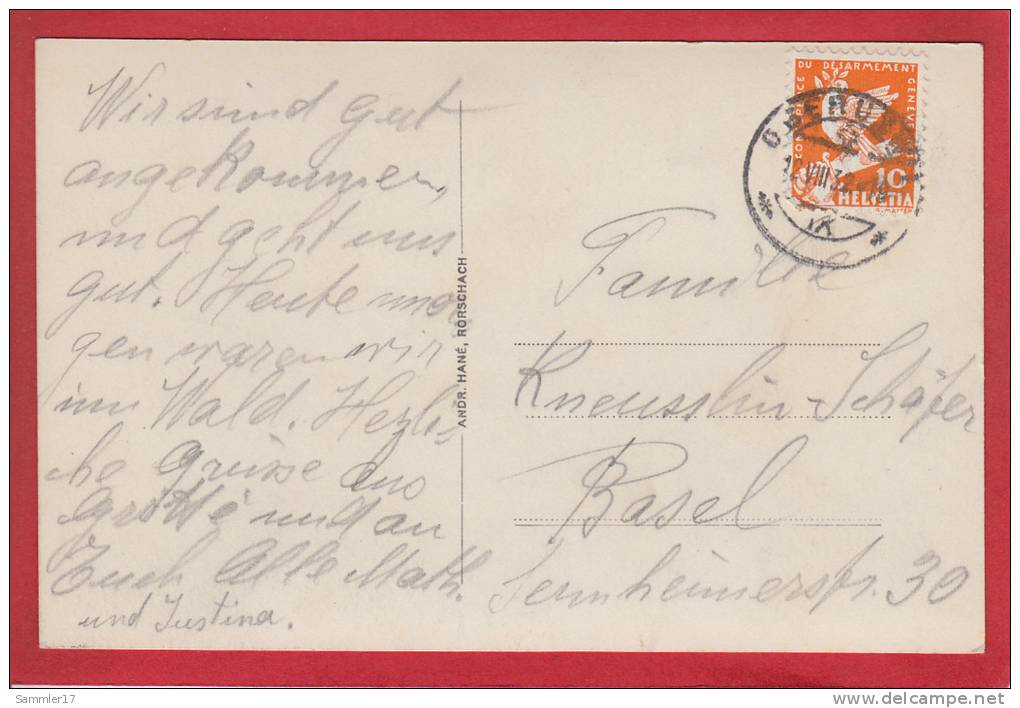 Wir sind gut
angekommen,
und geht uns
gut. Heute mor
gen waren wir
im Wald. Herzli-
che Grüsse aus
und an
Euch Alle Math.
und Justina.
ANDR. HANÉ, RORSCHACH
DU DESARMEMENT
GENÈVE
10
HELVETIA
VIII
Familie
Kneusslin-Schäfer
Basel
30
Sammler17
www.delcampe.net